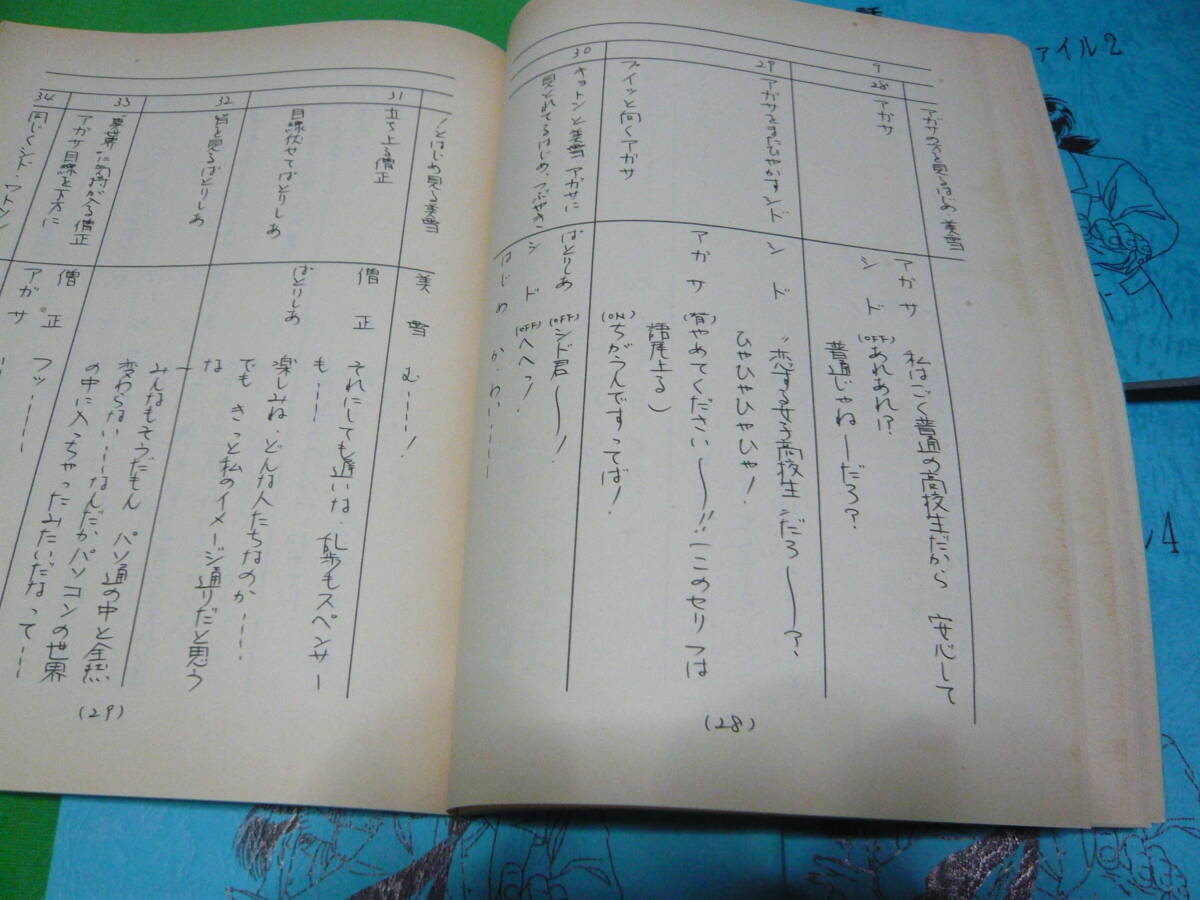 アガサの方を見るはじめ、美雪
9
28
アガサ
アガサ
私はごく普通の高校生だから 安心して
シド
(OFF)あれあれ!?
普通じゃねーだろ?
29
アガサをまたひやかすシド
シド
〝恋する女子高校生〟だろ〜〜?
ひゃひゃひゃひゃ!
アガサ
(背)やめてください〜〜!!(このセリフは
語尾上る)
プイッと向くアガサ
(ON)ちがうんですってば!
30
キョトンと美雪 アガサに
見とれてるはじめ、つぶやき
ぱとりしあ
(OFF)シド君〜〜!
シド
(OFF)へへっ!
はじめ
か・わいい----
(28)
ノとはじめ見る美雪
美雪
む----!
31
立ち上る僧正
僧正
それにしても遅いな、乱歩もスペンサー
も---
目線伏せてぱとりしあ
ぱとりしあ
楽しみね、どんな人たちなのか----
でも きっと私のイメージ通りだと思う
な
32
皆を見るぱとりしあ
みんなもそうだもん パソ通の中と全然
変わらない---なんだかパソコンの世界
の中に入っちゃったみたいだなって---
33
僧正
フッ----
アガサ目線を下方に
アガサ
34
同じくシド・ワトソン
(29)
ァイル2
ン4